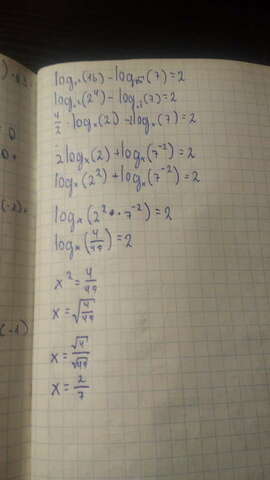 log_{x²}(16) - log_{√x}(7) = 2
log_{x²}(2⁴) - log_{x^{½}}(7) = 2
4/2 · log_x(2) - 2log_x(7) = 2
2log_x(2) + log_x(7⁻²) = 2
log_x(2²) + log_x(7⁻²) = 2
log_x(2² · 7⁻²) = 2
log_x(4/49) = 2
x² = 4/49
x = √(4/49)
x = √4/√49
x = 2/7